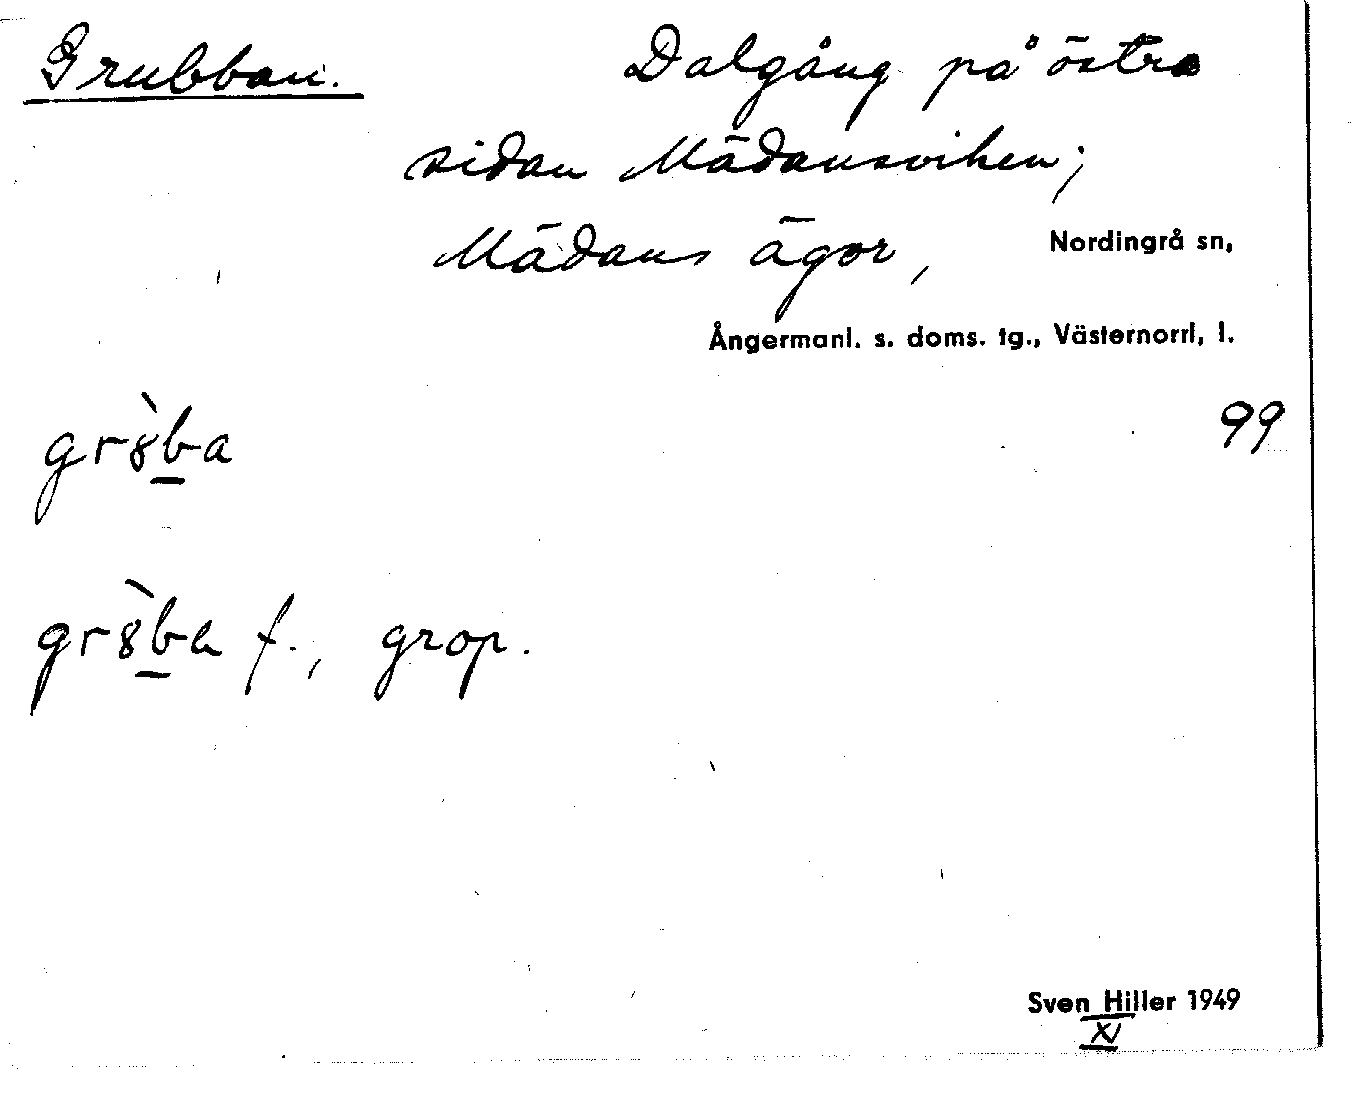 Grubban. Dalgång på östra
sidan Mädansviken;
Mädans ägor, Nordingrå sn,
Ångermanl. s. doms. tg., Västernorrl. l.
99
gr8̀b̲a
gr8̀b̲a f., grop.
Sven Hiller 1949
XI